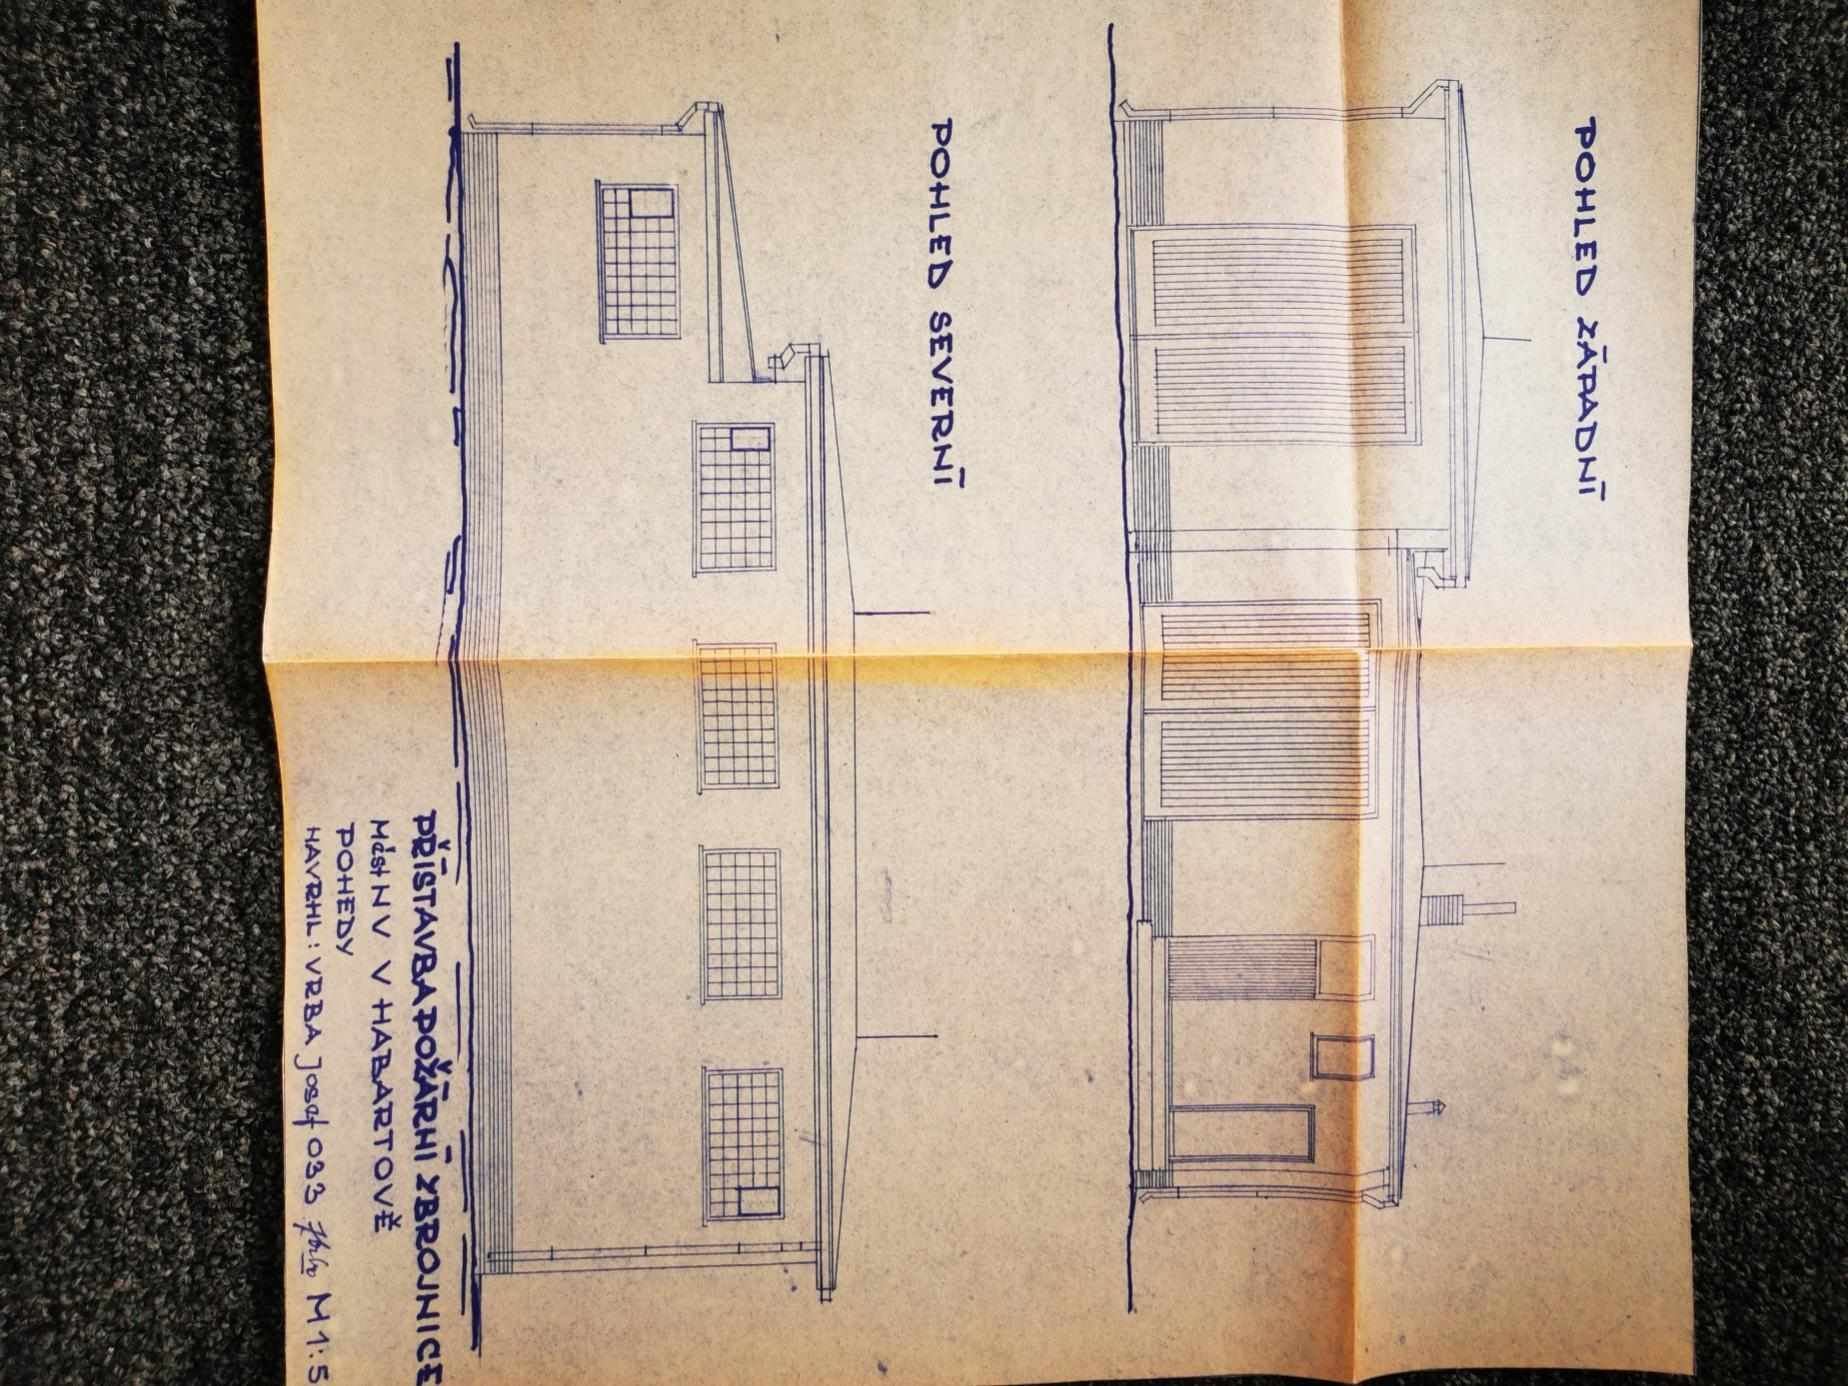 POHLED ZÁPADNÍ
POHLED SEVERNÍ
PŘÍSTAVBA POŽÁRNÍ ZBROJNICE
MěstNV V HABARTOVĚ
POHEDY
NAVRHL: VRBA Josef 033 M 1:5